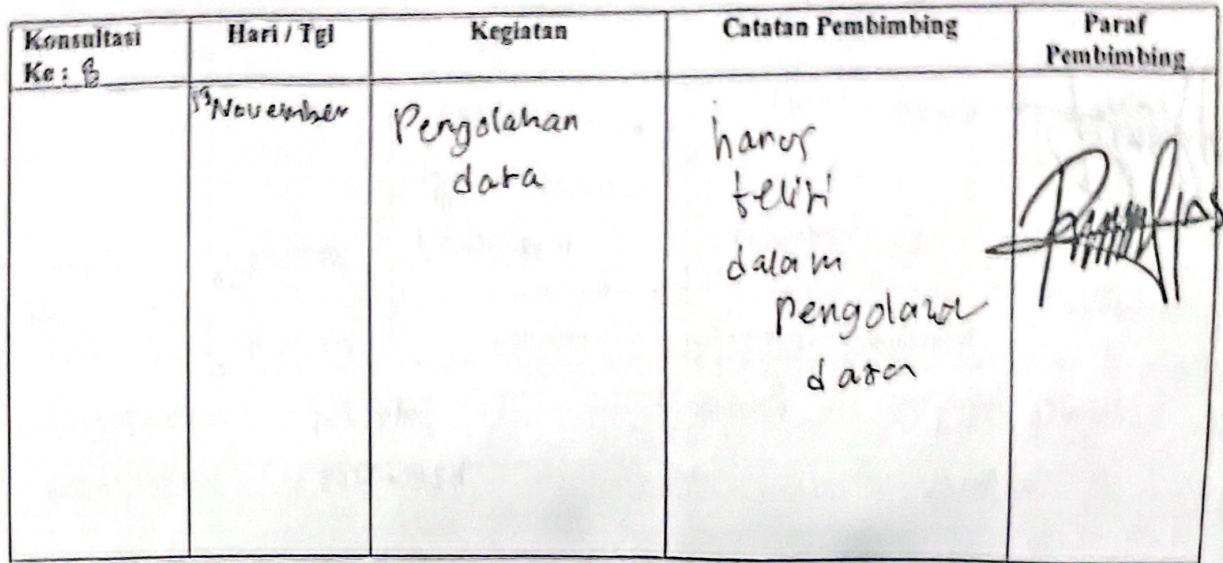 Konsultasi Ke : 8
Hari / Tgl
Kegiatan
Catatan Pembimbing
Paraf Pembimbing
November
Pengolahan
data
harus
teliti
dalam
pengolahan
data